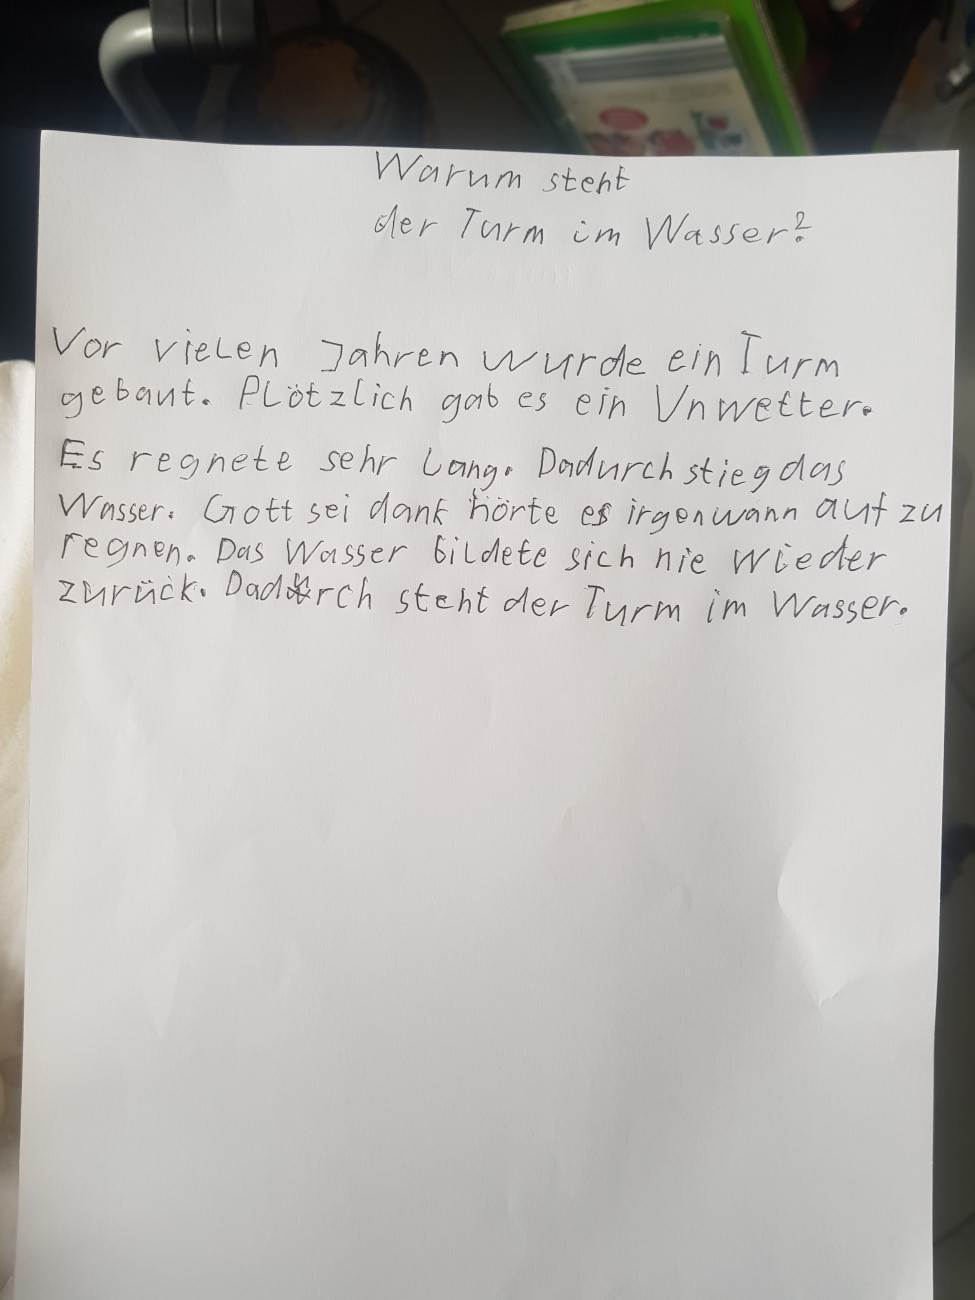 Warum steht
der Turm im Wasser?
Vor vielen Jahren wurde ein Turm
gebaut. Plötzlich gab es ein Unwetter.
Es regnete sehr lang. Dadurch stieg das
Wasser. Gott sei dank hörte es irgenwann auf zu
regnen. Das Wasser bildete sich nie wieder
zurück. Dadurch steht der Turm im Wasser.